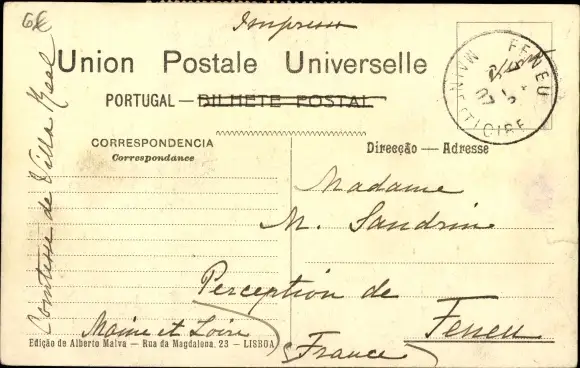 6€
Impresso
Union Postale Universelle
PORTUGAL — BILHETE POSTAL
FENEU
MAINE ET LOIRE
CORRESPONDENCIA
Correspondance
Direcção — Adresse
Comtesse de Villa Real
Madame
M. Sandrin
Perception de
Feneu
Maine et Loire
France
Edição de Alberto Malva — Rua da Magdalena, 23 — LISBOA